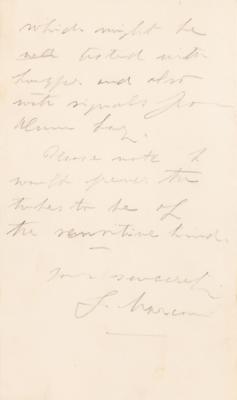 which might be
tested with
and also
with signals from
Alum Bay.
Please note I
would prefer the
tubes to be of
the sensitive kind.
Yours sincerely
G. Marconi